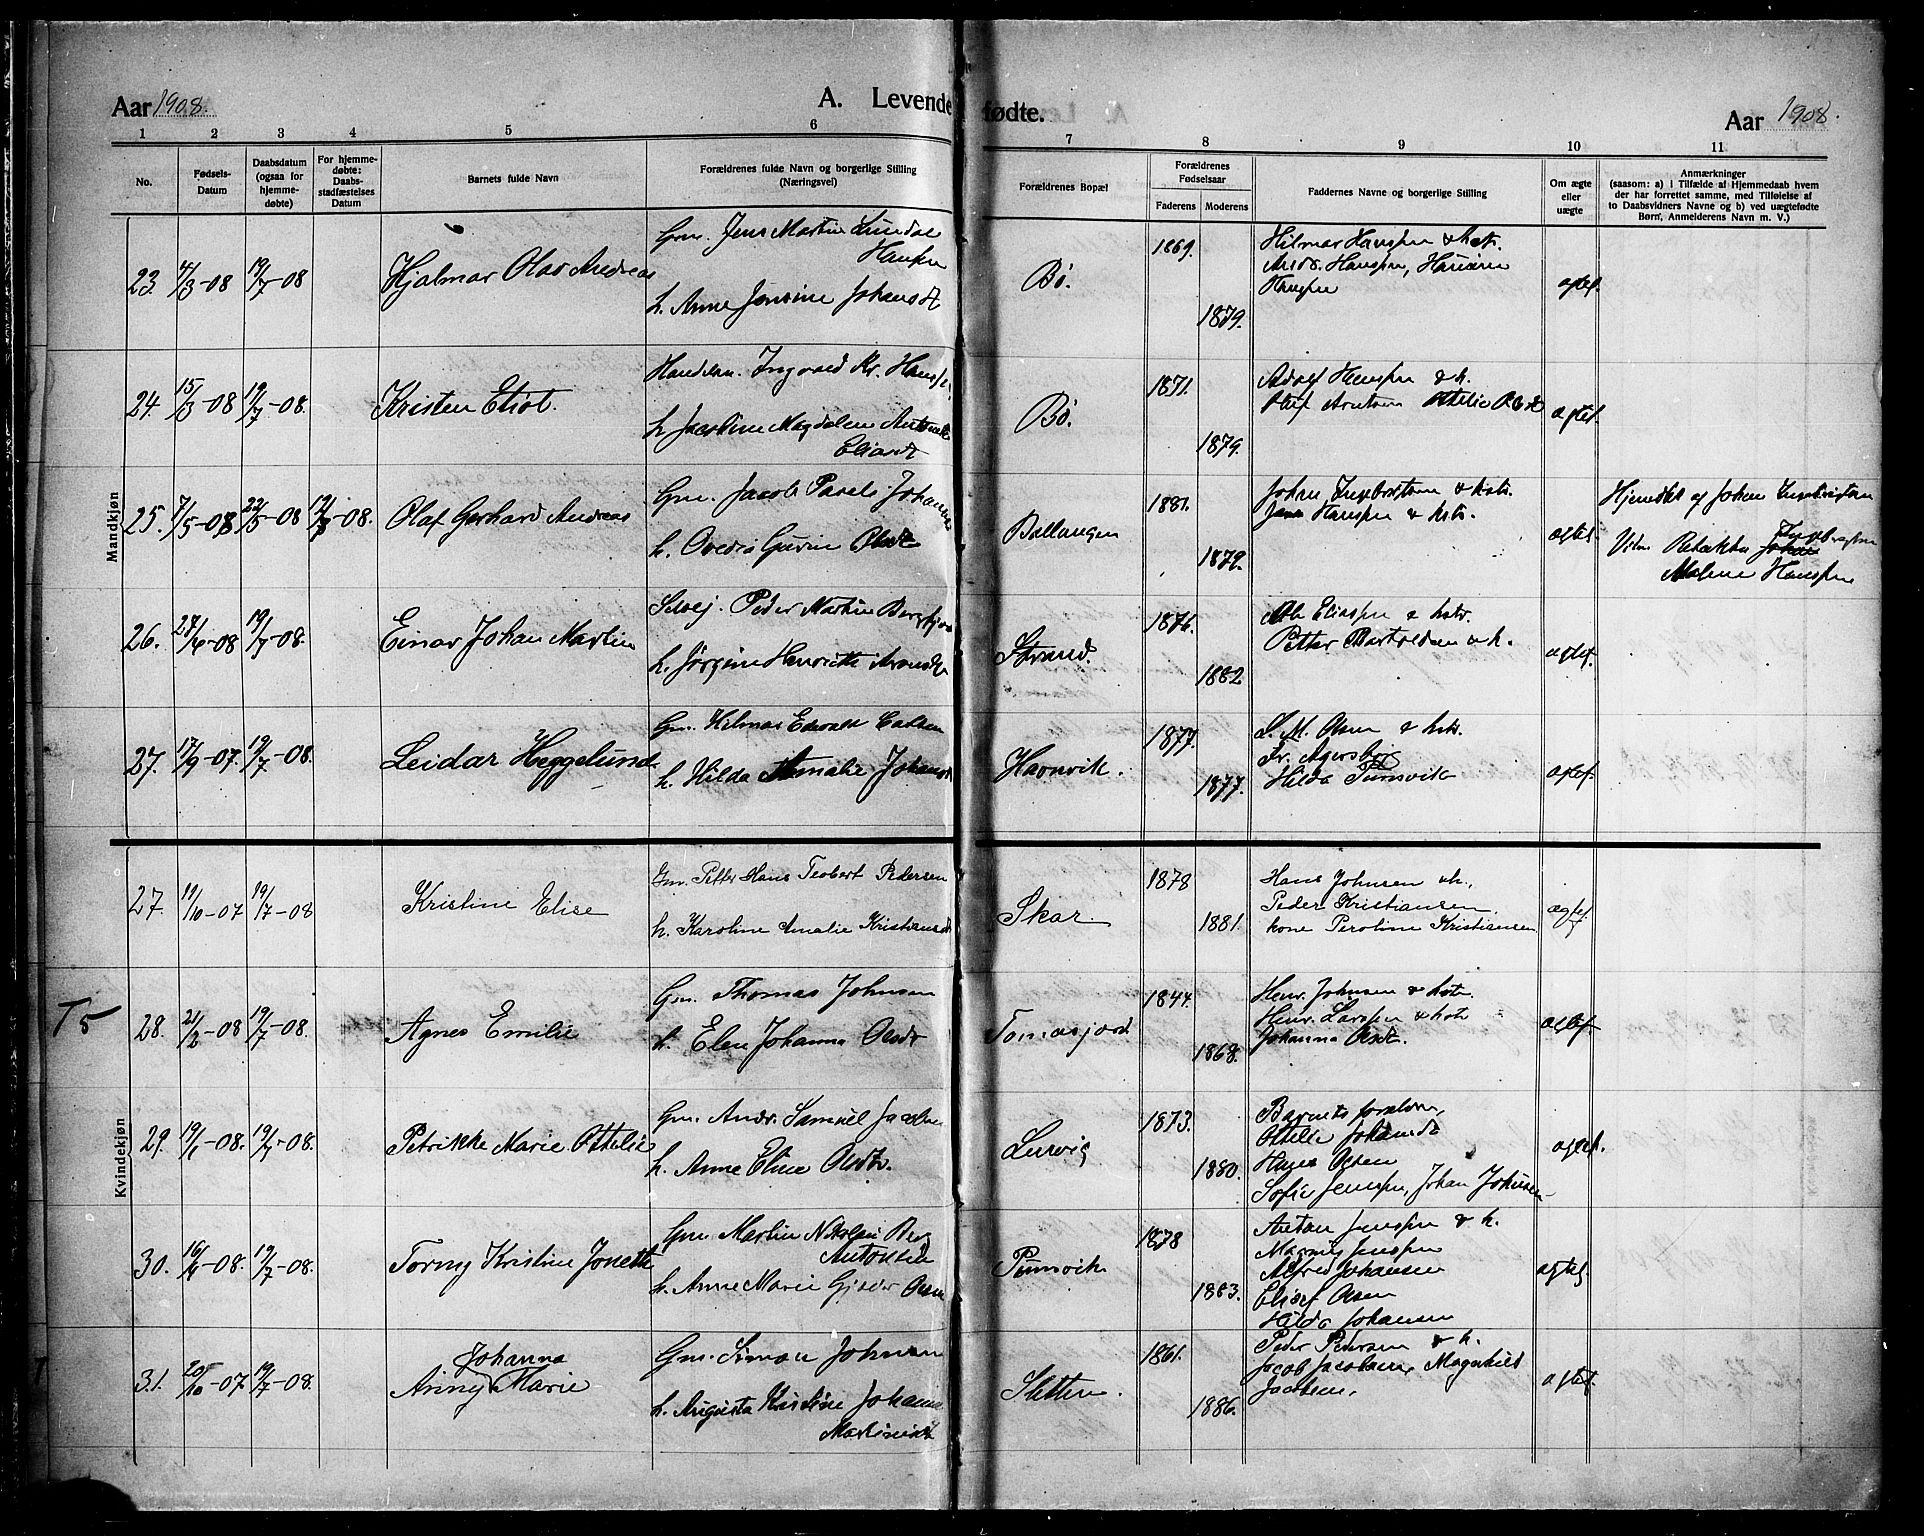 Aar 1908.
A. Levende fødte.
Aar 1908.
1 2 3 4 5 6 7 8 9 10 11
No.
Fødsels-
Datum
Daabsdatum
(ogsaa for
hjemme-
døbte)
For hjemme-
døbte:
Daabs-
stadfæstelses
Datum
Barnets fulde Navn
Forældrenes fulde Navn og borgerlige Stilling
(Næringsvei)
Forældrenes Bopæl
Forældrenes
Fødselsaar
Faderens Moderens
Faddernes Navne og borgerlige Stilling
Om ægte
eller
uægte
Anmærkninger
(saasom: a) i Tilfælde af Hjemmedaab hvem
der har forrettet samme, med Tilføielse af
to Daabsvidners Navne og b) ved uægtefødte
Børn, Anmelderens Navn m. V.)
Mandkjøn
23. 4/3-08 19/7-08
Hjalmar Olav Andreas
Gm. Jens Martin Lundal
Hansen
h. Anne Jensine Johansdt
Bø.
1869.
1879.
Hilmar Hanssen & kstr.
Andr. Hanssen,
Hanssen
ægtef.
24. 15/3-08 19/7-08.
Kristen Eliot.
Handelsm. Ingvald Kr. Hanssen
h. Jacobine Magdalene Antonette
Eliasdt
Bø.
1871.
1879.
Adolf Hanssen & h.
Oluf Arntsen Ottelie Olsdt
ægtef.
25. 7/5-08 22/5-08 19/7-08.
Olaf Gerhard Andreas
Gm. Jacob Parel Johannes
h. Ovedia Gurine Olsdt
Ballangen
1881.
1879.
Johan Ingebrigtsen & kstr.
Jens Hanssen & kstr.
ægtef.
Hjemdbt af Johan Ingebrigtsen
Vitn. Ingebrigtsen
Malene Hanssen
26. 27/4-08 19/7-08.
Einar Johan Martin
Selvej. Peder Martin Bergfjord
h. Jørgine Henriette Arnesdt
Strand.
1876.
1882
Ole Eliassen & kstr.
Petter Bartoldsen & h.
ægtef.
27. 17/9-07. 19/7-08.
Leidar Heggelund.
Gm. Hilmar Edvald
h. Hilda Amalie Johansdt
Havnvik.
1877.
1877.
L. M. Olsen & kstr.
Fr. Agersborg
Hilda Punsvik
ægtef.
Kvindekjøn
27. 11/10-07 19/7-08
Kristine Elise
Gm. Petter Hans Teobert Pedersen
h. Karoline Amalie Kristiansdt
Skar.
1878
1881.
Hans Johnsen & h.,
Peder Kristiansen,
kone Peroline Kristiansen
ægtef.
T5
28. 21/2-08 19/7-08.
Agnes Emilie
Gm. Thomas Johnsen
h. Elen Johanna Olsdt
Tomasjord.
1844.
1868.
Henr. Johnsen & kstr.
Henr. Larssen & kstr
Johanna Olsdt.
ægtef.
29. 19/1-08. 19/7-08.
Petrikke Marie Ottelie
Gm. Andr. Samuel Jacobsen
h. Anne Eline Olsdtr.
Lervig
1873.
1880.
Barnets forældre,
Ottelie Johansdt
Hans Olsen
Sofie Jenssen, Johan Johnsen
ægtef.
30. 16/4-08. 19/7-08.
Torny Kristine Jonette
Gm. Martin Nikolai Berg
Antonsen
h. Anne Marie Olsen
Punsvik
1878
1883.
Anton Jenssen & h.
Magnus Jenssen
Alfred Johansen
Elisef Olsen
Hilda Johansen
ægtef.
31. 20/10-07 19/7-08.
Johanna
Anny Marie
Gm. Simon Johnsen
h. Augusta Kristine Johanne
Martinsdt
Sletten.
1861.
1886.
Peder Pedersen & h.
Jacob Jacobsen, Magnhild
Jacobsen.
ægtef.